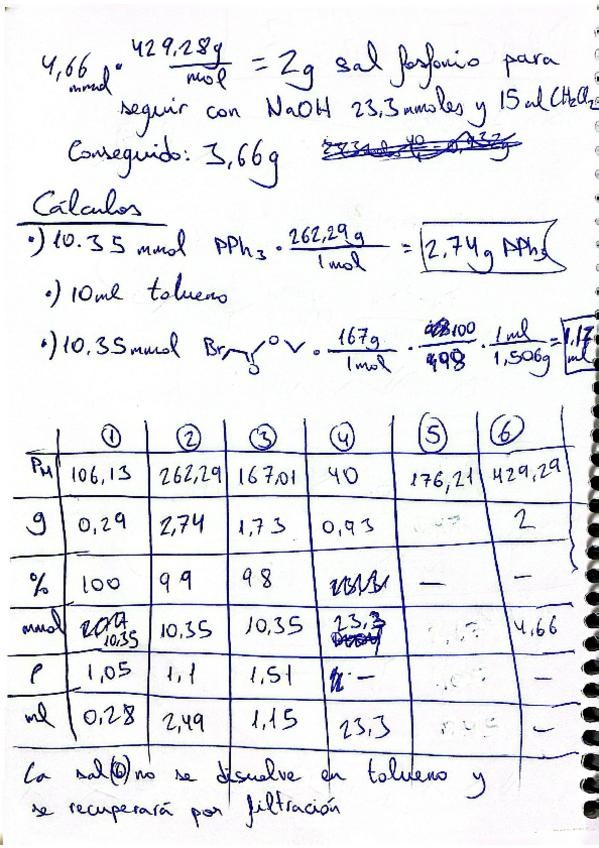 4,66 mmol · 429,28g / mol = 2g sal fosfonio para
seguir con NaOH 23,3 mmoles y 15 ml CH2Cl2
Conseguido: 3,66g
Cálculos
·) 10.35 mmol PPh3 · 262,29 g / 1 mol = 2,74g PPh3
·) 10ml tolueno
·) 10,35 mmol Br O O · 167g / 1mol · 100 / 98 · 1 ml / 1,506g = 1,17 ml
① ② ③ ④ ⑤ ⑥
PM 106,13 262,29 167,01 40 176,21 429,29
g 0,29 2,74 1,73 0,93 2
% 100 99 98 — —
mmol 10,35 10,35 10,35 23,3 4,66
ρ 1,05 1,1 1,51 — —
ml 0,28 2,49 1,15 23,3 —
La sal (6) no se disuelve en tolueno y
se recuperará por filtración